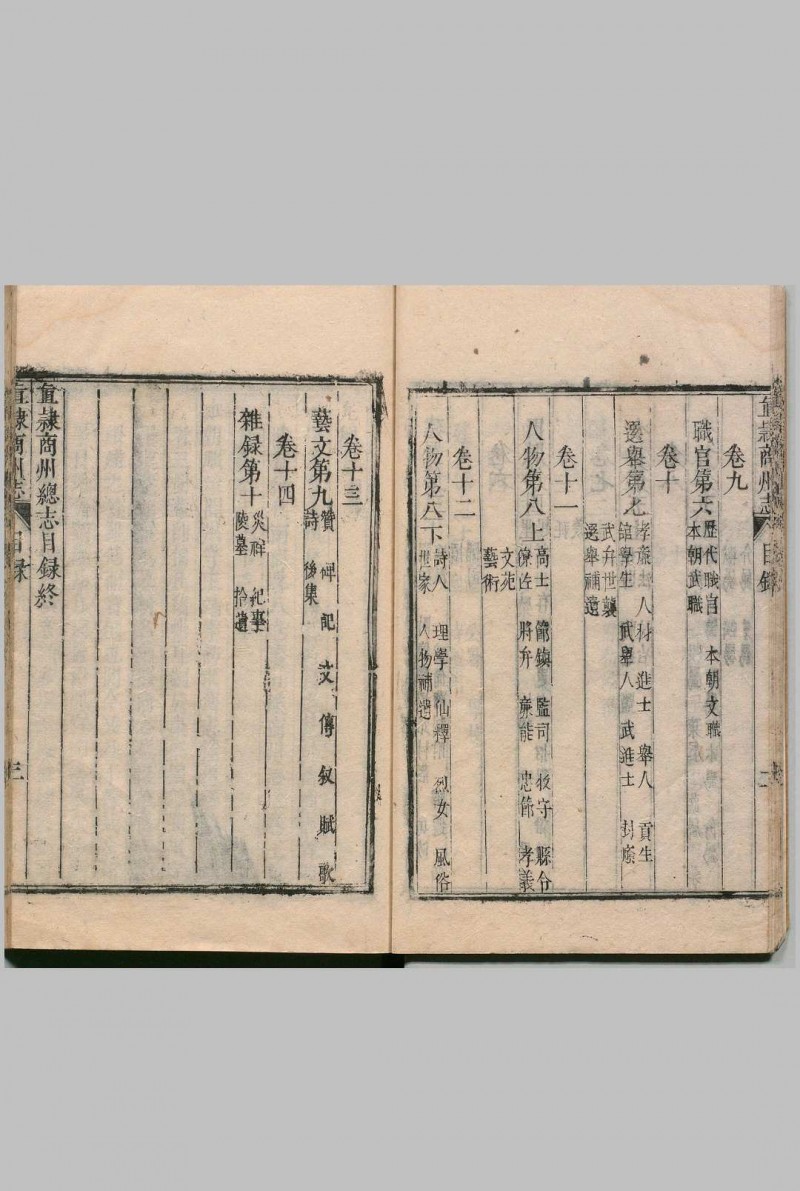 直隸商州志 目錄 二
卷九
職官第六 歷代職官 本朝文職
本朝武職
卷十
選舉第七 孝廉 人材 進士 舉人 貢生
館學生 武舉人 武進士 封廕
武弁世襲
選舉補遺
卷十一
人物第八上 高士 節鎮 監司 牧守 縣令
僚佐 將弁 廉能 忠節 孝義
文苑
藝術
卷十二
人物第八下 詩人 理學 仙釋 烈女 風俗
世家 人物補遺
卷十三
藝文第九 贊 碑 記 文 傳 敘 賦 歌
詩 後集
卷十四
雜錄第十 災祥 紀事
陵墓 拾遺
直隸商州總志目録終
直隸商州志 目録 三